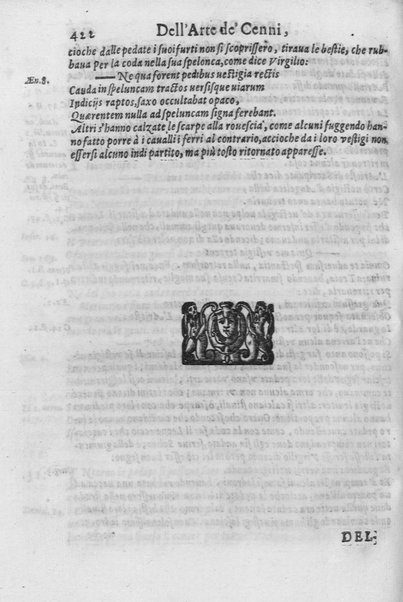 422 Dell'Arte de' Cenni,
cioche dalle pedate i suoi furti non si scoprissero, tiraua le bestie, che rub-
baua per la coda nella sua spelonca, come dice Virgilio:
Æn. 8. —— Ne qua forent pedibus uestigia rectis
Cauda in speluncam tractos uersisque uiarum
Indicijs raptos, saxo occultabat opaco,
Quærentem nulla ad speluncam signa ferebant.
Altri s'hanno calzate le scarpe alla rouescia, come alcuni fuggendo han-
no fatto porre à i caualli i ferri al contrario, accioche da i loro vestigi non
essersi alcuno indi partito, ma più tosto ritornato apparesse.
DEL-